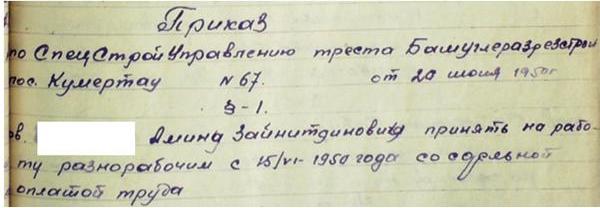 Приказ
по СпецСтройУправлению треста Башуглеразрезстрой
пос. Кумертау N 67. от 20 июня 1950г
§-1.
Амина Зайнитдиновича принять на рабо-
ту разнорабочим с 15/VI-1950 года со сдельной
оплатой труда